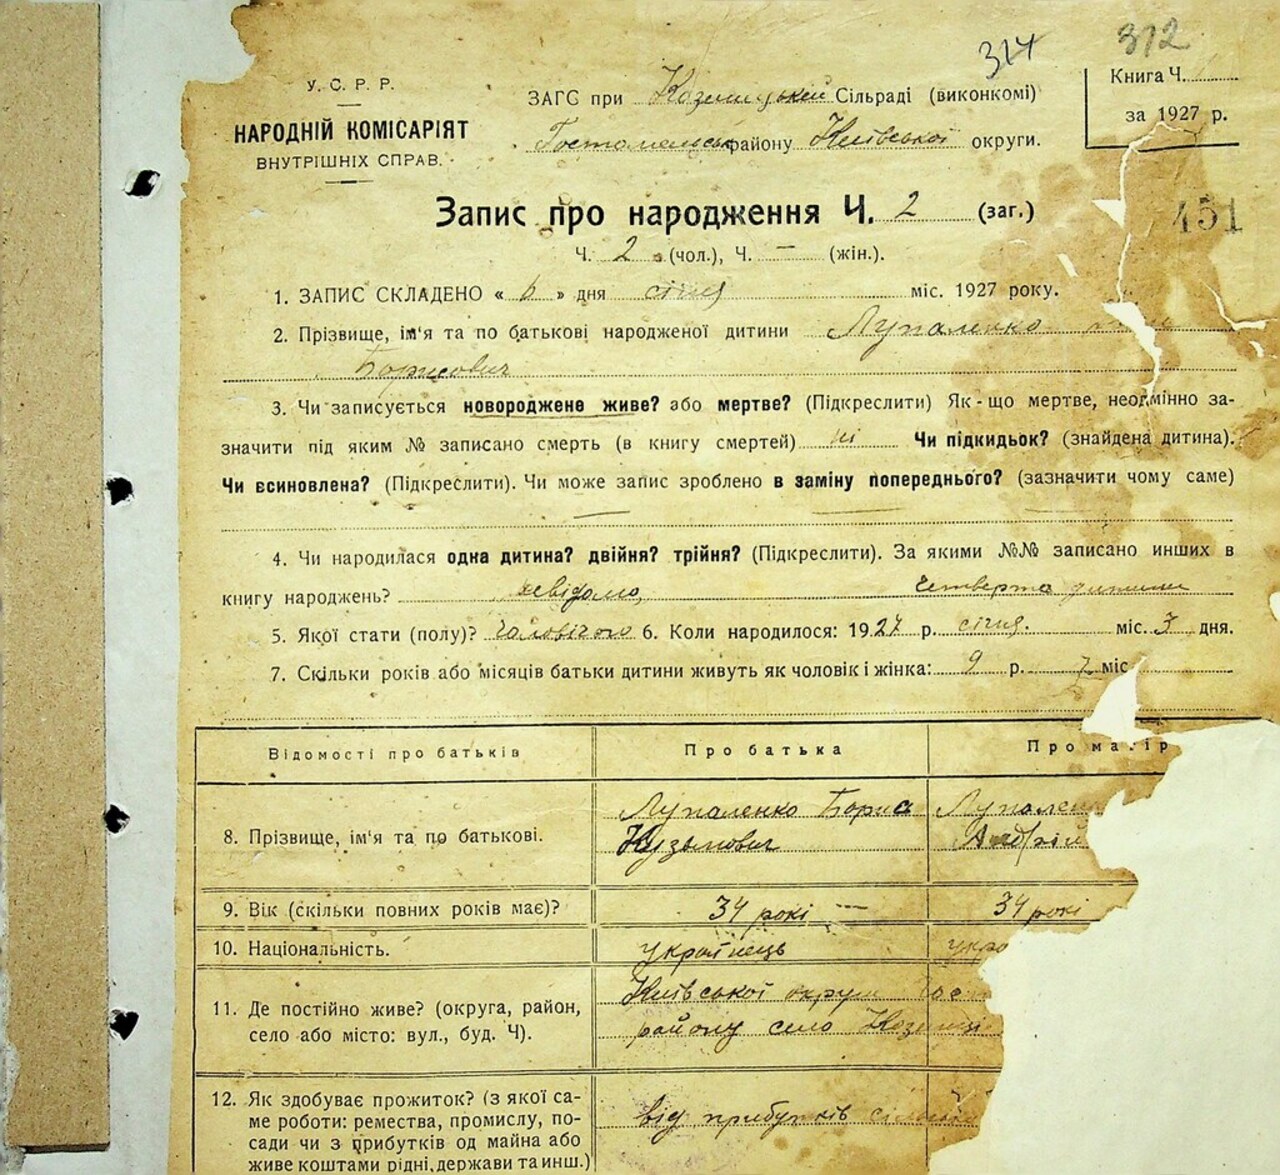 314 312
У. С. Р. Р.
НАРОДНІЙ КОМІСАРІЯТ
ВНУТРІШНІХ СПРАВ.
ЗАГС при Сільраді (виконкомі)
Гостомельськ району Київської округи.
Книга Ч.
за 1927 р.
Запис про народження Ч. 2 (заг.)
451
Ч. 2 (чол.), Ч. — (жін.).
1. ЗАПИС СКЛАДЕНО « 6 » дня січня міс. 1927 року.
2. Прізвище, ім'я та по батькові народженої дитини Лупаленко
Борисович
3. Чи записується новороджене живе? або мертве? (Підкреслити) Як-що мертве, неодмінно за-
значити під яким № записано смерть (в книгу смертей) ні Чи підкидьок? (знайдена дитина).
Чи всиновлена? (Підкреслити). Чи може запис зроблено в заміну попереднього? (зазначити чому саме)
4. Чи народилася одна дитина? двійня? трійня? (Підкреслити). За якими №№ записано инших в
книгу народжень? невідомо, четверта дитина
5. Якої стати (полу)? чоловічого 6. Коли народилося: 1927 р. січня. міс. 3 дня.
7. Скільки років або місяців батьки дитини живуть як чоловік і жінка: 9 р. 7 міс
Відомості про батьків Про батька Про матір
8. Прізвище, ім'я та по батькові. Лупаленко Бориса Лупален
Кузьмович Андрій
9. Вік (скільки повних років має)? 34 рокі — 34 рокі
10. Національність. українець укра
11. Де постійно живе? (округа, район,
село або місто: вул., буд. Ч).
Київської округи Гос
району село
12. Як здобуває прожиток? (з якої са-
ме роботи: ремества, промислу, по-
сади чи з прибутків од майна або
живе коштами рідні, держави та инш.)
від прибутків сільськ